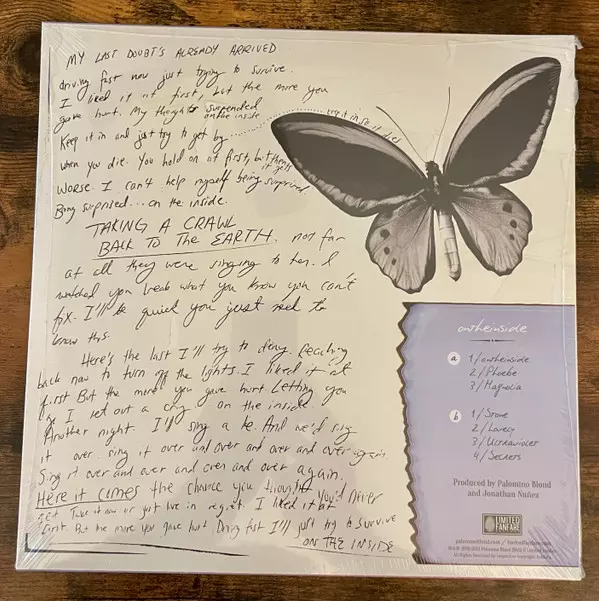 MY LAST DOUBT'S ALREADY ARRIVED
driving fast now just trying to survive.
I liked it at first, but the more you
gave hurt. My thoughts suspended
on the inside
Keep it in and just try to get by
when you die. You hold on at first, but then
it gets
worse. I can't help myself being surprised
Being surprised... on the inside.
TAKING A CRAWL
BACK TO THE EARTH. not far
at all they were singing to her. I
watched you break what you know you can't
fix. I'll be quick you just need to
know this.
Here's the last I'll try to deny. Reaching
back now to turn off the lights. I liked it at
first But the more you gave hurt Letting you
go I let out a cry. on the inside.
Another night. I'll sing a lie. And we'd sing
it over. sing it over and over and over and over again.
Sing it over and over and over and over again.
Here it comes the chance you thought you'd never
get Take it now or just live in regret. I liked it at
first. But the more you gave hurt Dying fast I'll just try to survive
ON THE INSIDE
ontheinside
a
1/ontheinside
2/Phoebe
3/Magnolia
b
1/Stone
2/Lovely
3/Ultraviolet
4/Secrets
Produced by Palomino Blond
and Jonathan Nuñez
LIMITED
FANFARE